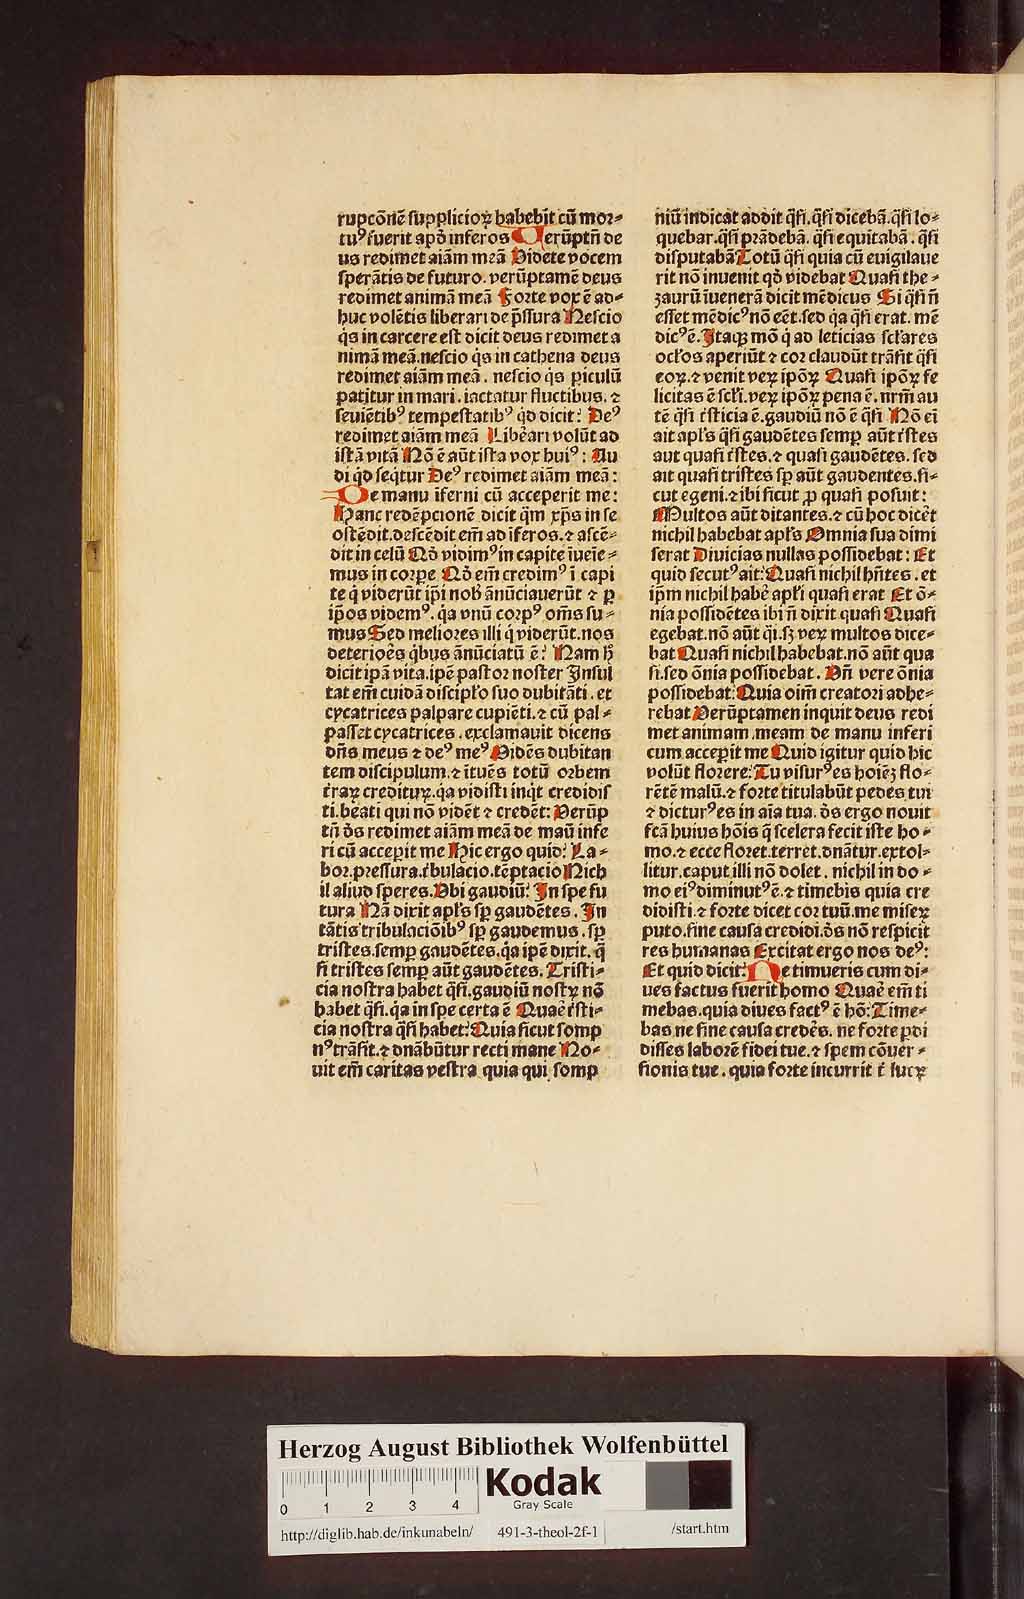 rupcōnē ſupplicioꝝ habebit cū mor⸗
tuꝰ fuerit apđ inferos Uerūptn̄ de
us redimet aīam meā Uidete vocem
ſperātis de futuro. verūptamē deus
redimet animā meā Forte vox ē ad⸗
huc volētis liberari de p̄ſſura Neſcio
q̇s in carcere eſt dicit deus redimet a
nimā meā. neſcio q̇s in cathena deus
redimet aīam meā. neſcio q̇s piculū
patitur in mari. iactatur fluctibus. ⁊
ſeuiētibꝰ tempeſtatibꝰ qđ dicit: Deꝰ
redimet aīam meā Liberari volūt ad
iſtā vitā Nō ē aūt iſta vox huiꝰ: Au
di qđ ſeqtur Deꝰ redimet aīam meā:
De manu īferni cū acceperit me:
Hanc redēpcionē dicit qm̄ xp̄s in ſe
oſtēdit. deſcēdit em̄ ad īferos. ⁊ aſcē⸗
dit in celū Nō vidimꝰ in capite īueīe⸗
mus in corpe Nō em̄ credimꝰ ī capi
te q̇ viderūt ip̄i nob̄ ānūciauerūt ⁊ ꝑ
ip̄os videmꝰ. q̇a vnū corpꝰ om̄s ſu⸗
mus Sed meliores illi q̇ viderūt. nos
deterioēs q̇bus ānūciatū ē: Nam h̄
dicit ipā vita. ipē paſtor noſter Inſul
tat em̄ cuidā diſcipło ſuo dubitāti. et
cycatrices palpare cupiēti. ⁊ cū pal⸗
paſſet cycatrices. exclamauit dicens
dn̄s meus ⁊ deꝰ meꝰ Uidēs dubitan
tem diſcipulum. ⁊ ītuēs totū orbem
t̄raꝝ credituꝝ. q̇a vidiſti inq̇t credidiſ
ti. beati qui nō vidēt ⁊ credēt: Uerūp
tn̄ ds̄ redimet aīam meā de maū infe
ri cū accepit me Hic ergo quid: La⸗
bor. preſſura. t̄bulacio. tēptacio Nich
il aliud ſperes. Ubi gaudiū: In ſpe fu
tura Nā dixit apl̄s ſꝑ gaudētes. In
tātis tribulaciōibꝰ ſꝑ gaudemus. ſꝑ
triſtes. ſemꝑ gaudētes. q̇a ipē dixit. q̄
ſi triſtes ſemꝑ aūt gaudētes. Triſti⸗
cia noſtra habet q̄ſi. gaudiū noſtꝝ nō
habet q̄ſi. q̇a in ſpe certa ē Quaē t̄ſti⸗
cia noſtra q̄ſi habet: Quia ſicut ſomp
nꝰ trāſit. ⁊ dnābūtur recti mane No⸗
uit em̄ caritas veſtra quia qui ſomp
niū indicat addit q̄ſi. q̄ſi dicebā. q̄ſi lo⸗
quebar. q̄ſi prādebā. q̄ſi equitabā. q̄ſi
diſputabā Totū q̄ſi quia cū euigilaue
rit nō inuenit qđ videbat Quaſi the⸗
zaurū īuenerā dicit mēdicus Si q̄ſi n̄
eſſet mēdicꝰ nō eēt. ſed q̇a q̄ſi erat. mē
dicꝰ ē. Itaqꝫ mō q̇ ad leticias ſcl̄ares
ocl̄os aperiūt ⁊ cor claudūt trāſit q̄ſi
eoꝝ. ⁊ venit veꝝ ipōꝝ Quaſi ipōꝝ fe
licitas ē ſcl̄i. veꝝ ipōꝝ pena ē. nr̄m au
tē q̄ſi t̄ſticia ē. gaudiū nō ē q̄ſi Nō eī
ait apl̄s q̄ſi gaudētes ſemꝑ aūt t̄ſtes
aut quaſi t̄ſtes. ⁊ quaſi gaudētes. ſed
ait quaſi triſtes ſꝑ aūt gaudentes. ſi⸗
cut egeni. ⁊ ibi ſicut ꝓ quaſi poſuit:
Multos aūt ditantes. ⁊ cū hoc dicēt
nichil habebat apl̄s Omnia ſua dimi
ſerat Diuicias nullas poſſidebat: Et
quid ſecutꝰ ait: Quaſi nichil hn̄tes. et
ip̄m nichil habē apl̄i quaſi erat Et ō⸗
nia poſſidētes ibi n̄ dixit quaſi Quaſi
egebat. nō aūt q̄i. ſꝫ veꝝ multos dice⸗
bat Quaſi nichil habebat. nō aūt qua
ſi. ſed ōnia poſſidebat. Un̄ vere ōnia
poſſidebat: Quia oīm creatori adhe⸗
rebat Uerūptamen inquit deus redi
met animam meam de manu inferi
cum acceꝑit me Quid igitur quid hic
volūt florere: Tu viſurꝰ es hoīeꝫ flo⸗
rētē malū. ⁊ forte titulabūt pedes tui
⁊ dicturꝰ es in aīa tua. ds̄ ergo nouit
fcā huius hōis q̄ ſcelera fecit iſte ho⸗
mo. ⁊ ecce floret. terret. dnātur. extol⸗
litur. caput illi nō dolet. nichil in do⸗
mo eiꝰ diminutꝰ ē. ⁊ timebis quia cre
didiſti. ⁊ forte dicet cor tuū. me miſeꝝ
puto. ſine cauſa credidi. ds̄ nō reſpicit
res humanas Excitat ergo nos deꝰ:
Et quid dicit: Ne timueris cum di⸗
ues factus fuerit homo Quaē em̄ ti
mebas. quia diues factꝰ ē hō: Time⸗
bas ne ſine cauſa credēs. ne forte pdi
diſſes laborē fidei tue. ⁊ ſpem cōuer⸗
ſionis tue. quia forte incurrit t̄ lucꝝ
Herzog August Bibliothek Wolfenbüttel
0 1 2 3 4
Kodak
Gray Scale
http://diglib.hab.de/inkunabeln/ 491-3-theol-2f-1 /start.htm